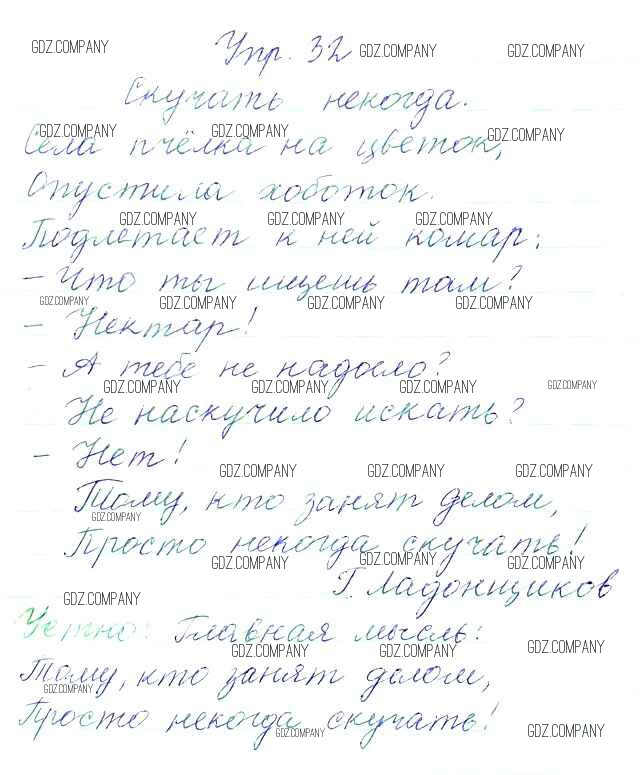 GDZ.COMPANY
Упр. 32
GDZ.COMPANY
GDZ.COMPANY
Скучать некогда.
GDZ.COMPANY
GDZ.COMPANY
GDZ.COMPANY
Села пчёлка на цветок,
Опустила хоботок.
GDZ.COMPANY
GDZ.COMPANY
GDZ.COMPANY
Подлетает к ней комар:
– Что ты ищешь там?
GDZ.COMPANY
GDZ.COMPANY
GDZ.COMPANY
GDZ.COMPANY
– Нектар!
– А тебе не надоело?
GDZ.COMPANY
GDZ.COMPANY
GDZ.COMPANY
GDZ.COMPANY
Не наскучило искать?
– Нет!
GDZ.COMPANY
GDZ.COMPANY
GDZ.COMPANY
Тому, кто занят делом,
GDZ.COMPANY
Просто некогда скучать!
GDZ.COMPANY
GDZ.COMPANY
GDZ.COMPANY
Г. Ладонщиков
GDZ.COMPANY
Устно: Главная мысль:
GDZ.COMPANY
GDZ.COMPANY
GDZ.COMPANY
Тому, кто занят делом,
GDZ.COMPANY
Просто некогда скучать!
GDZ.COMPANY
GDZ.COMPANY